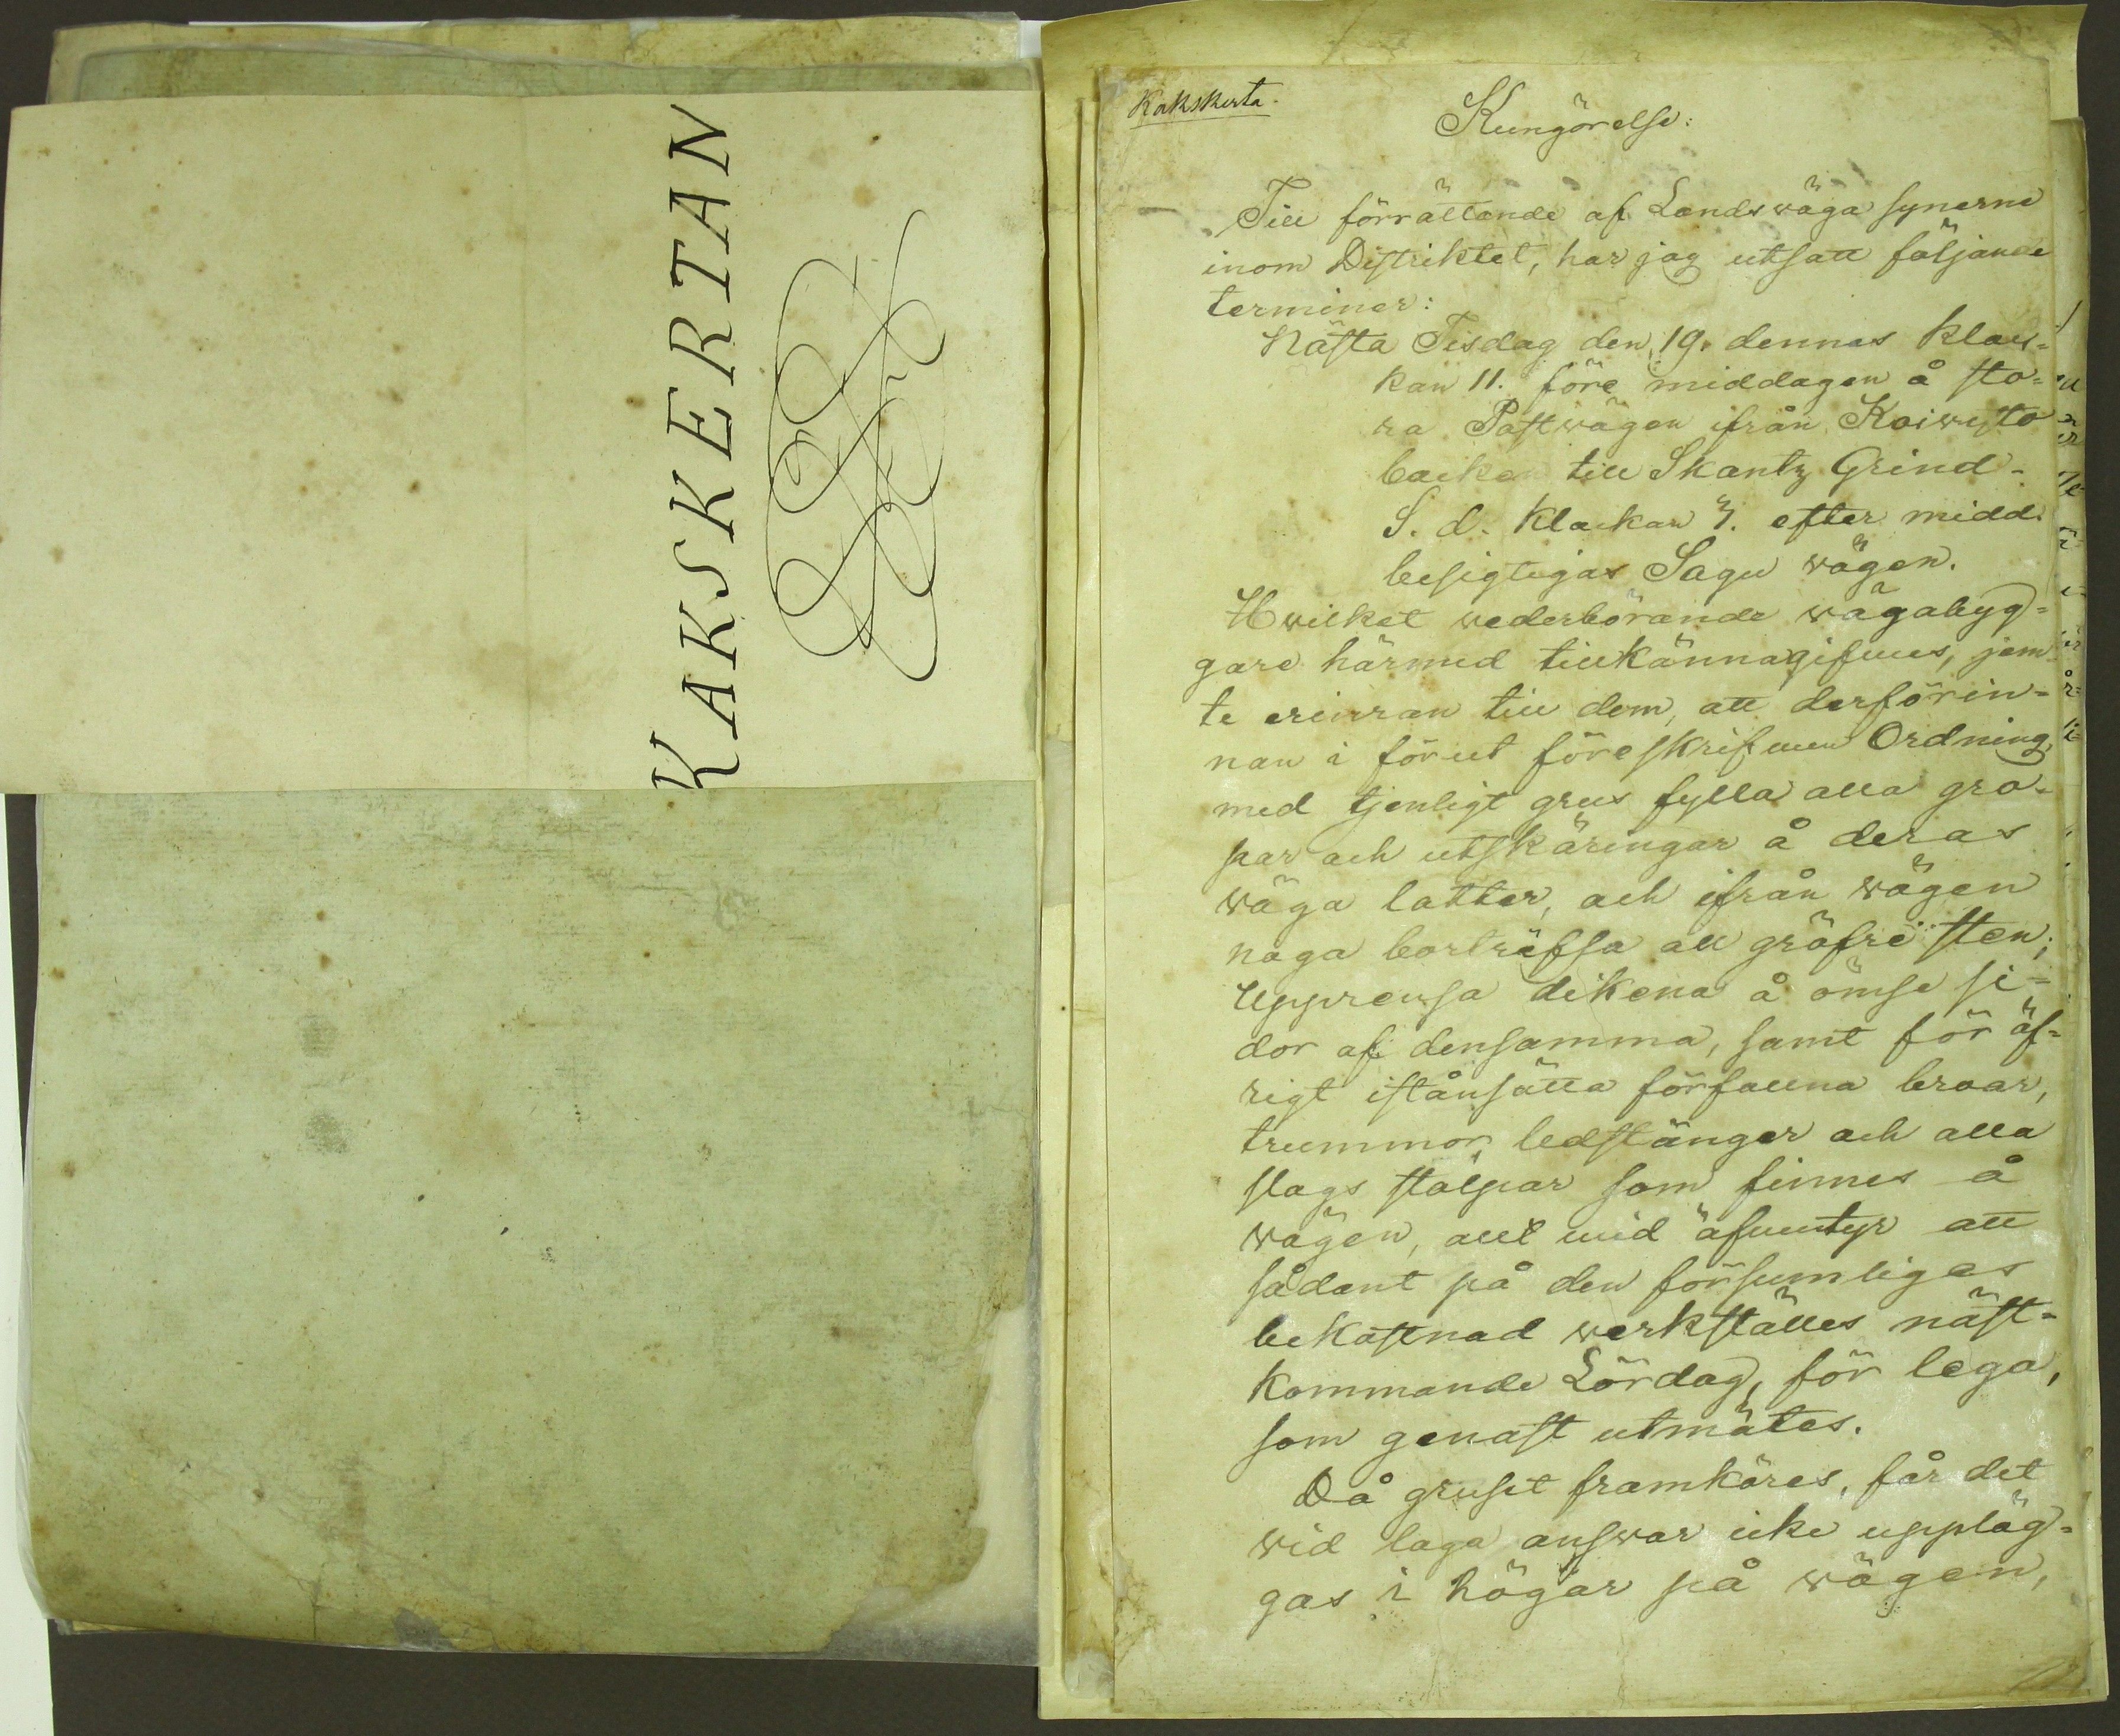 KAKSKERTAN
Kakskerta.
Kungörelse:
Till förrättande af Landsväga synerne
inom Distriktet, har jag utsatt följande
terminer:
Nästa Tisdag den 19. dennes klac-
kan 11. före middagen å sto-
ra Postvägen ifrån Koivisto
backen till Skantz Grind-
S. d. klackan 3. efter midd.
besigtigas Sagu vägen.
Hvilket vederbörande vägabyg-
gare härmed tillkännagifves, jem-
te erinran till dem, att derförin-
nan i förut föreskrifven Ordning,
med tjenligt grus fylla alla gro-
par och utskäringar å deras
väga lotter, och ifrån vägen
noga borträfsa all gröfre sten;
Upprensa dikena å ömse si-
dor af densamma, samt för öf-
rigt iståndsätta förfallna broar,
trummor, ledstänger och alla
slags stolpar som finnes å
vägen, allt vid äfventyr att
sådant på den försumliges
bekostnad verkställes näst-
kommande Lördag, för lega,
som genast utmätes.
Då gruset framköres, får det
vid laga ansvar icke uppläg-
gas i högar på vägen,